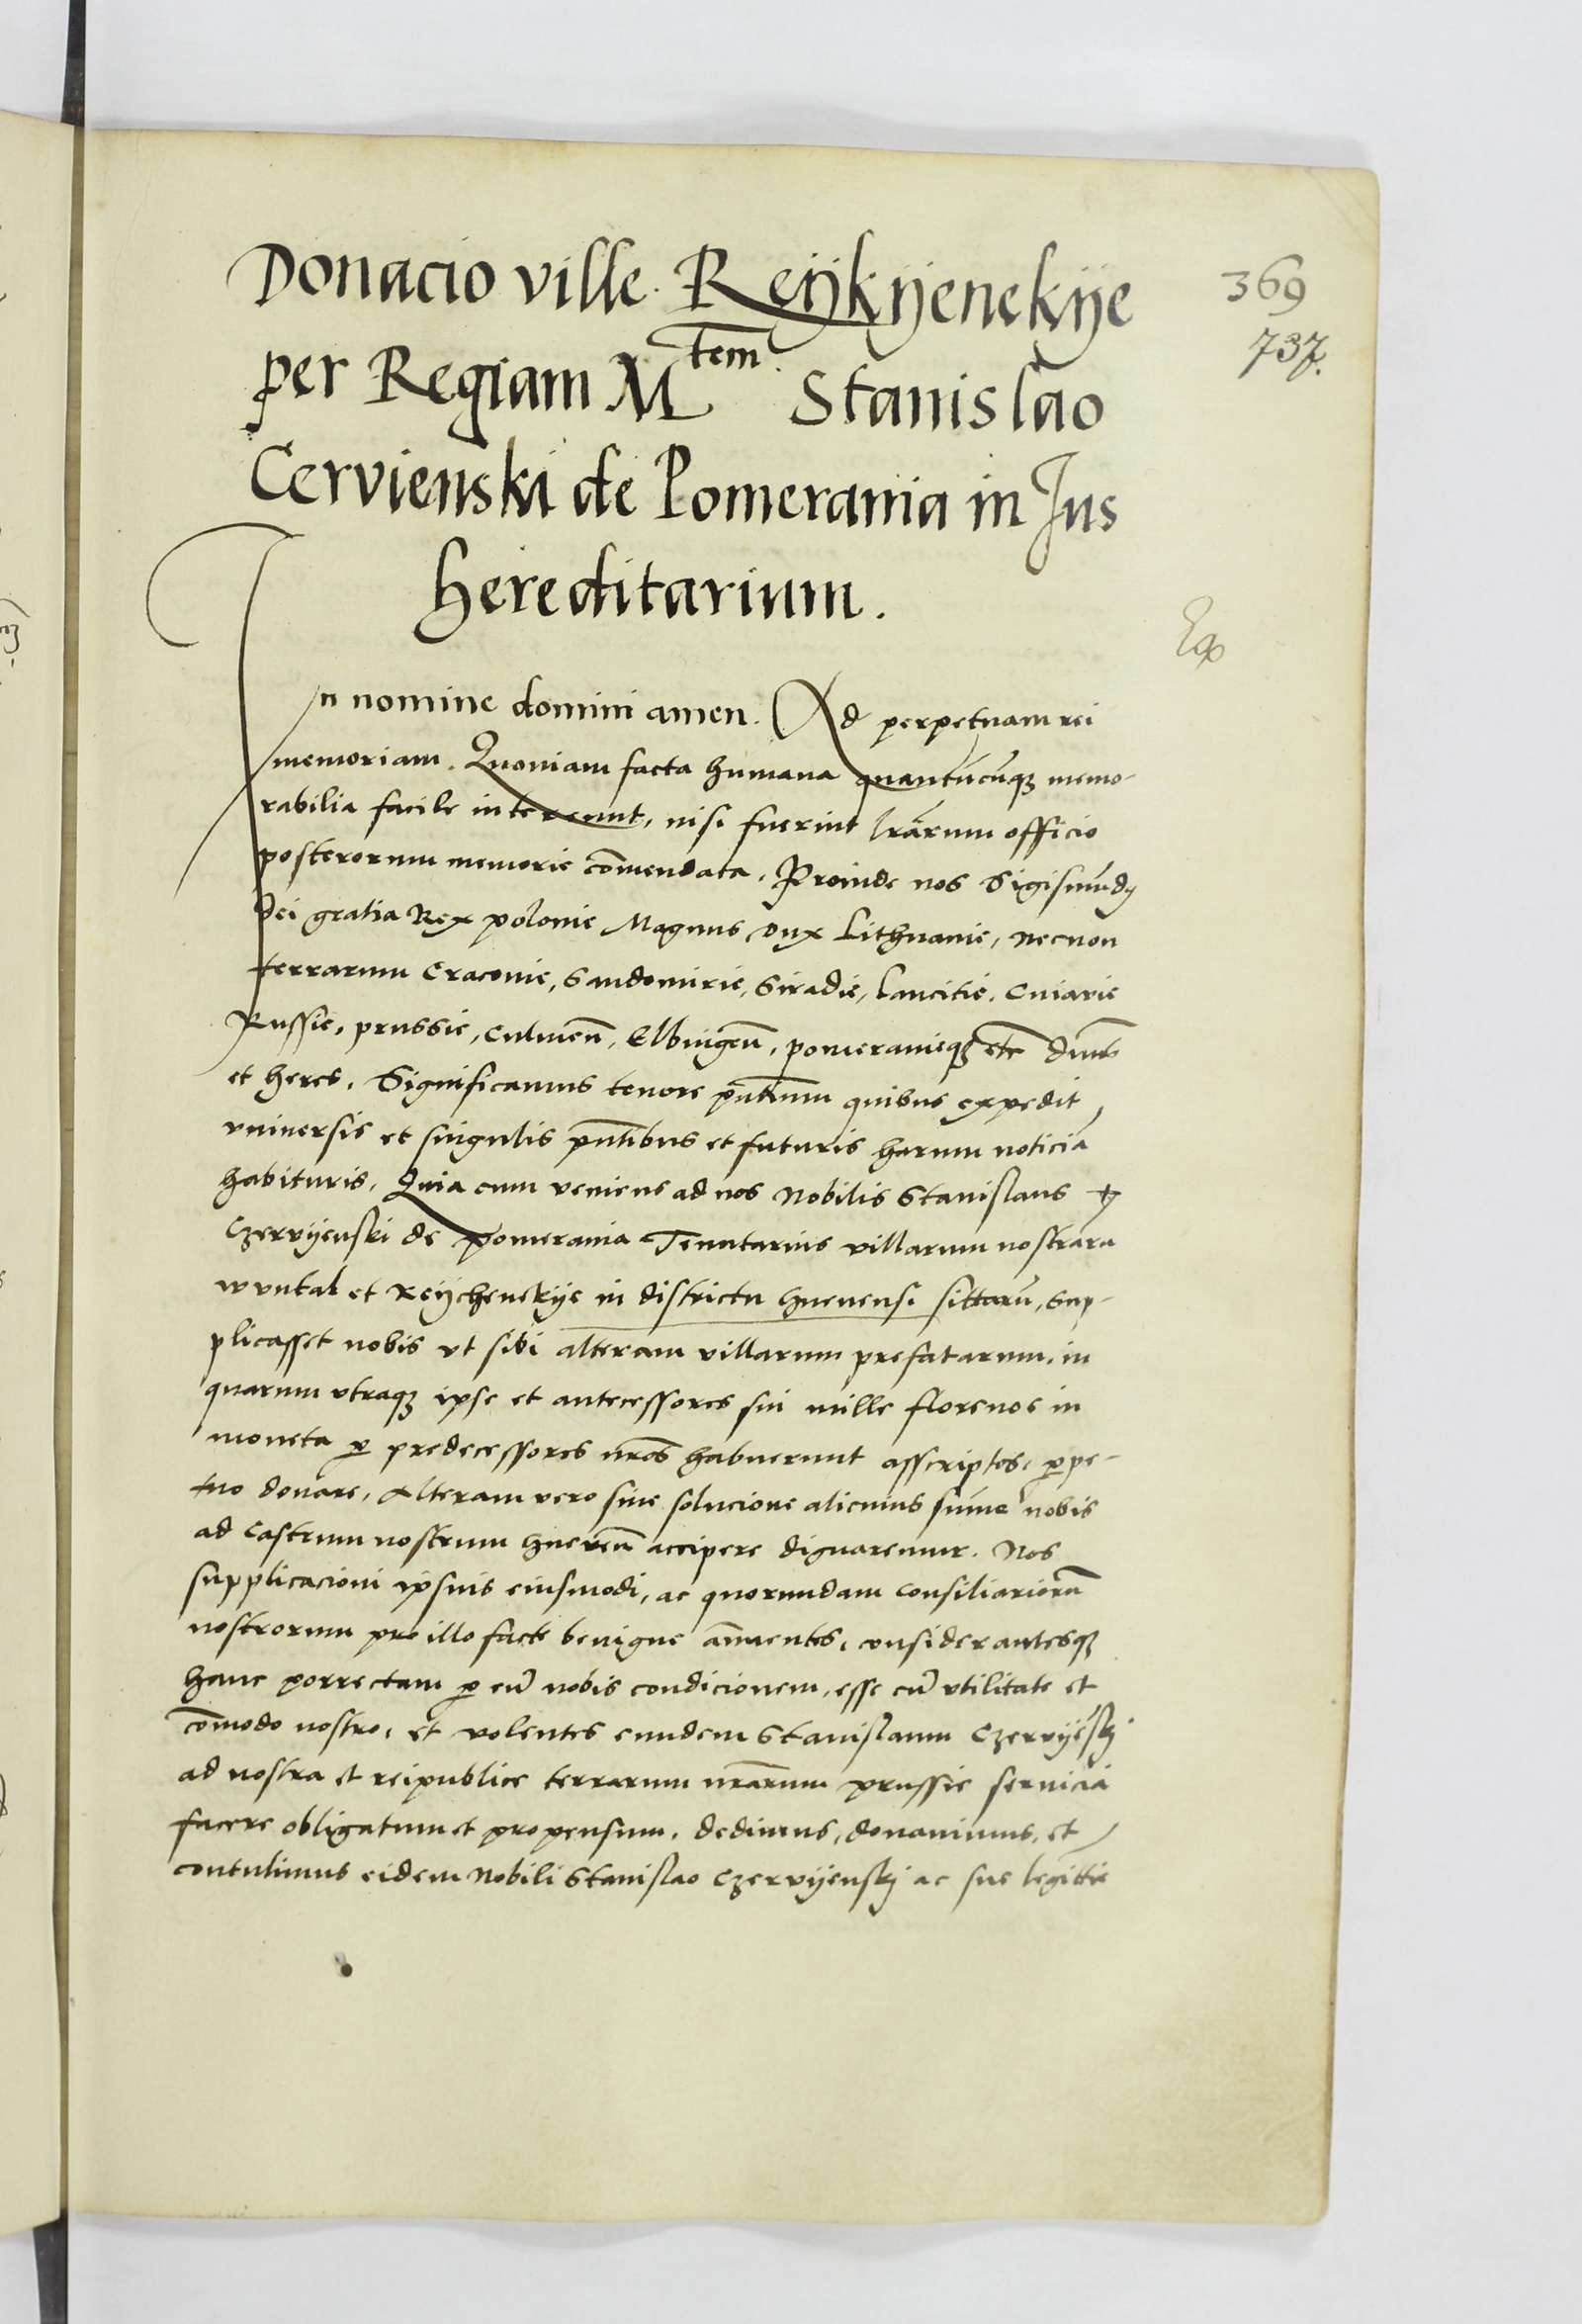 Donacio ville Reÿkÿenekÿe
369
737.
per Regiam M tem. Stanislao
Cervienski de Pomerania in Jus
hereditarium.
In nomine domini amen. Ad perpetuam rei
memoriam. Quoniam facta humana quantūcūq₃ memo-
rabilia facile intereunt, nisi fuerint lrārum officio
posterorum memorie cōmendata. Proinde nos Sigismūdꝯ
dei gratia Rex polonie Magnus Dux Lithuanie, necnon
terrarum Cracovie, Sandomirie, Siradie, Lancitie, Cuiavie
Russie, prussie, Culmeñ, Elbingeñ, pomeranieq₃ etc dūns
et heres. Significamus tenore pn̄tium quibus expedit
vniversis et singulis pn̄tibus et futuris harum noticiā
habituris. Quia cum veniens ad nos Nobilis Stanislaus
Czervÿenski de Pomerania Tenutarius villarum nostrarū
wuntal et Reÿchenekÿe in districtu Gnevensi sittarū, Sup-
plicasset nobis vt sibi alteram villarum prefatarum, in
quarum vtraq₃ ipse et antecessores sui mille florenos in
moneta ꝑ predecessores nr̄os habuerunt asscriptos, ꝑpe-
tuo donare, Alteram vero sine solucione alicuius sūme nobis
ad Castrum nostrum Gneveñ accipere dignaremur. Nos
supplicacioni ipsius eiusmodi, ac quorundam Consiliariorū
nostrorum pro illo facte benigne añuentes, considerantesq₃
hanc porrectam ꝑ eū nobis condicionem, esse cū vtilitate et
cōmodo nostro, et volentes eundem Stanislaum Czervÿēskj
ad nostra et reipublice terrarum nr̄arum prussie servicia
facere obligatum et propensum, dedimus, donavimus, et
contulimus eidem Nobili Stanislao Czervÿenskj ac sue legittie